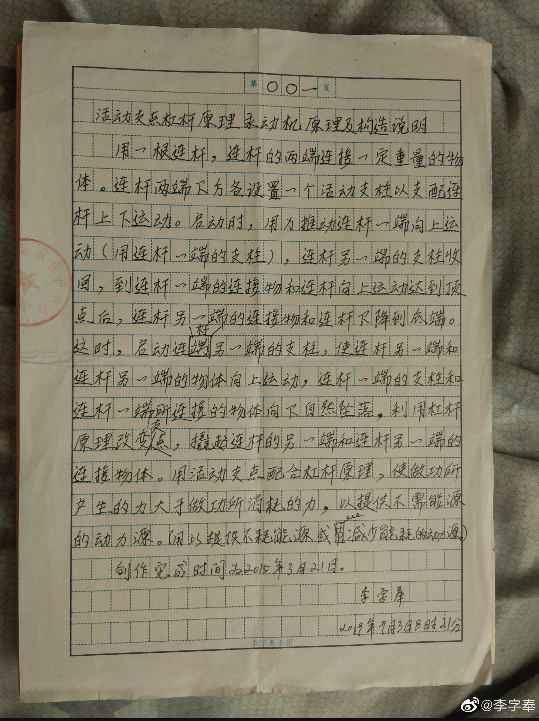 第〇〇一页
活动支点杠杆原理永动机原理及构造说明
用一根连杆，连杆的两端连接一定重量的物
体。连杆两端下方各设置一个活动支柱以支配连
杆上下运动。启动时，用力推动连杆一端向上运
动（用连杆一端的支柱），连杆另一端的支柱收
回，到连杆一端的连接物和连杆向上运动达到顶
点后，连杆另一端的连接物和连杆下降到底端。
这时，启动连杆另一端的支柱，使连杆另一端和
连杆另一端的物体向上运动，连杆一端的支柱和
连杆一端所连接的物体向下自然坠落。利用杠杆
原理改变支点，撬起连杆的另一端和连杆另一端的
连接物体。用活动支点配合杠杆原理，使做功所
产生的力大于做功所消耗的力，以提供不需能源
的动力源。（用以提供不耗能源或减少能耗的动力源）
创作完成时间为2015年3月21日。
李字奉
@李字奉